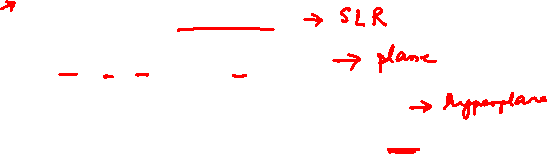 → SLR
→ plane
→ hyperplane